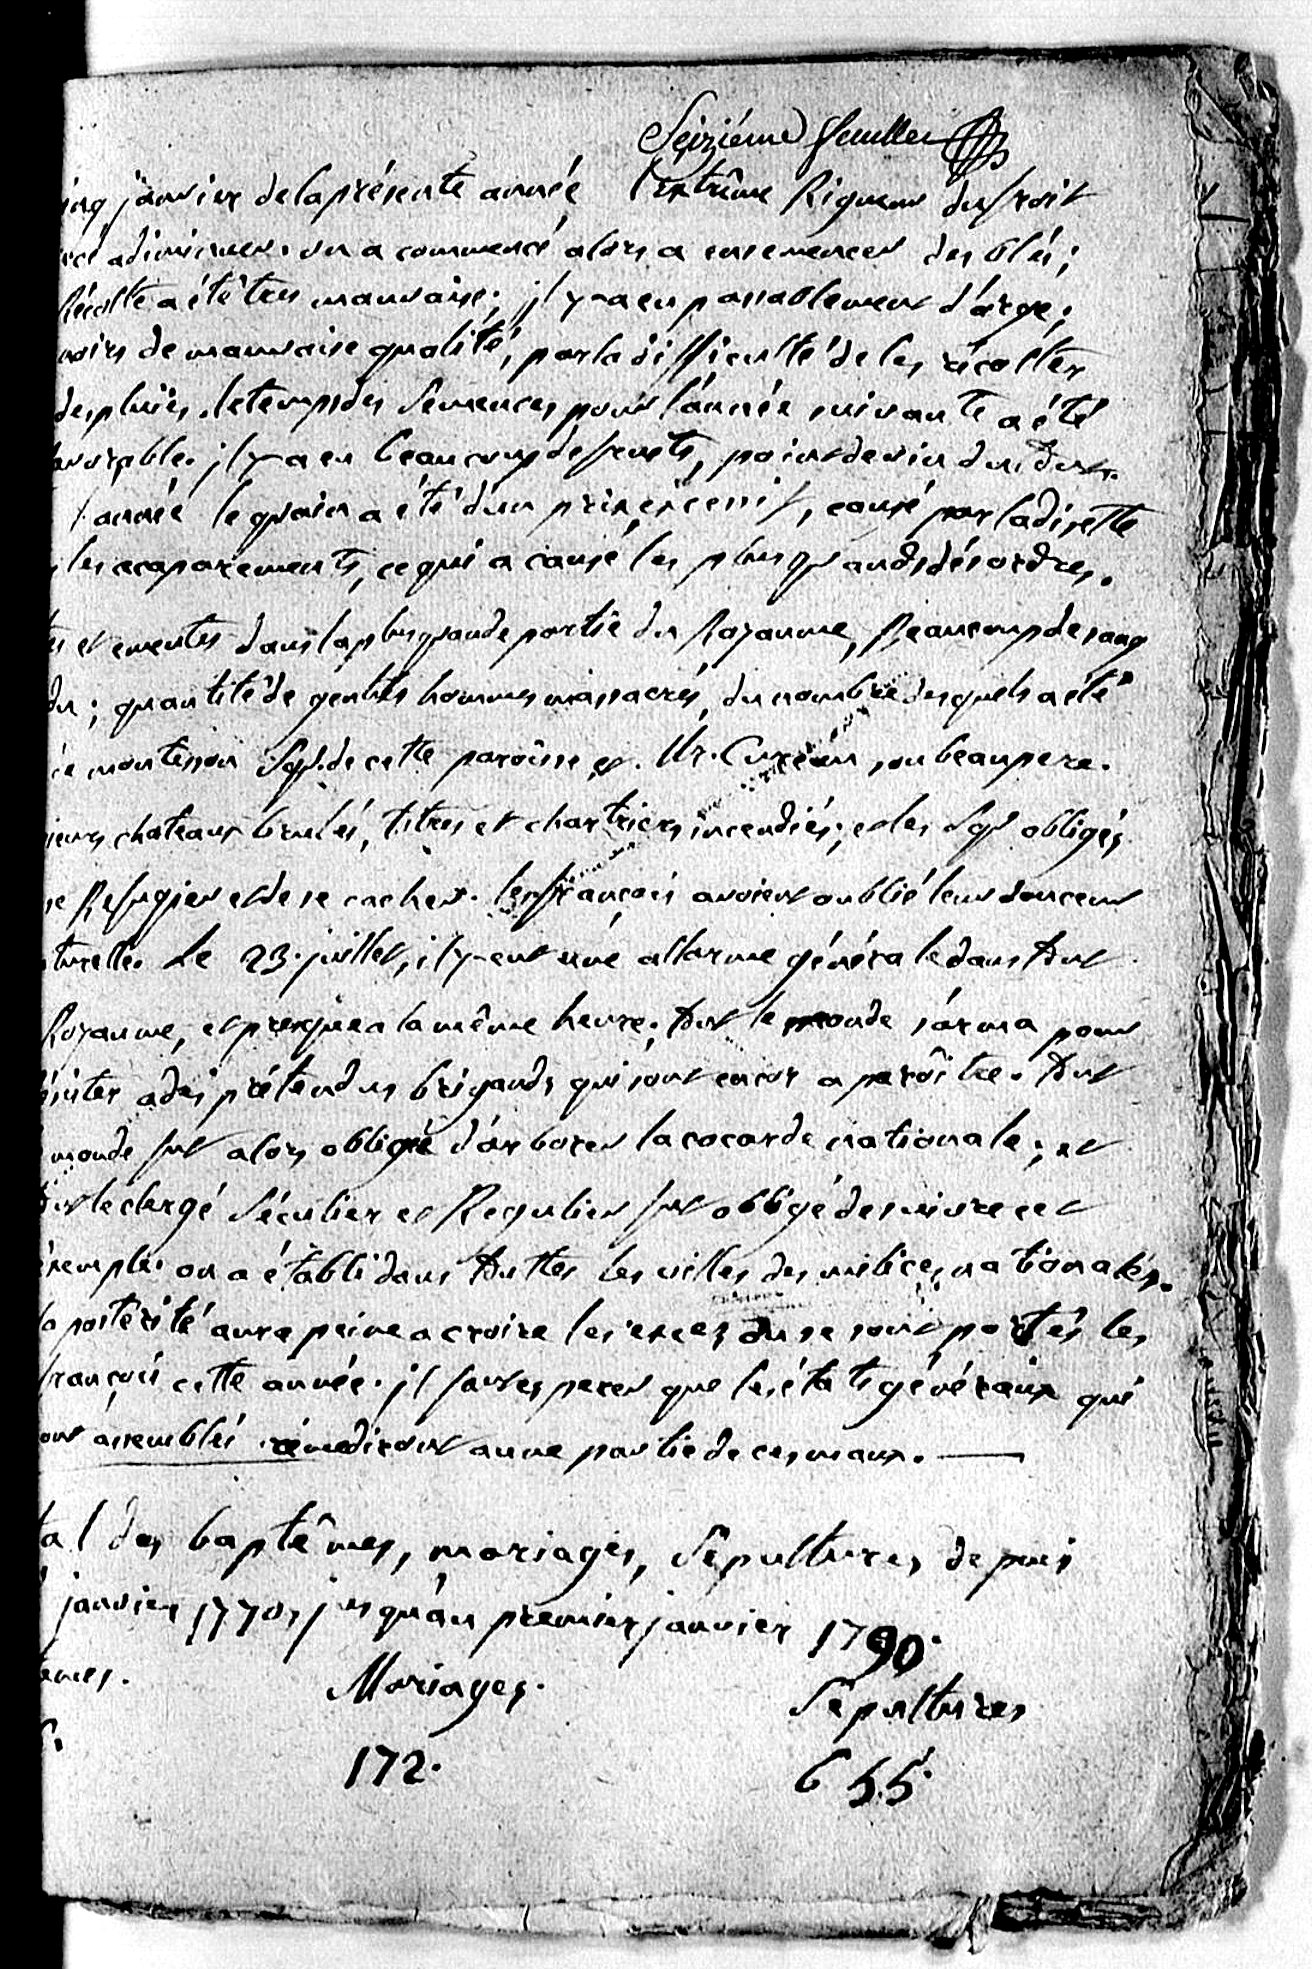 Seiziéme feuillet
inq janvier de la présente année l'extrême Rigueur du froit
adiminuer. on a commencé alors a ensemencer des blés;
Récolte a été tres mauvaise; jl y-a eu passablement d'órge;
noirs de mauvaise qualité, par la difficulté de les récolter
des pluïes. le temps des Semences pour l'année suivante a été
avorable. jl y-a eu beaucoup de fruits, point de vin du tout.
l'année le grain a été d'un prix excessif, causé par la disette
les acaparements, ce qui a causé les plus grands désordres.
es et emeutes dans la plus grande partie du Royaume, Beaucoup de sang
du; quantité de gentils hommes massacrés, du nombre desquels a été
ce montesson Sgr. de cette paroisse et Mr. Cureau son beaupere.
ieurs chateaux brulés, titres et chartriers incendiés; et les Sgrs obligés
se Refugier et de se cacher. les françois avoient oublié leur douceur
turelle. Le 23. juillet, il y-eut une allarme générale dans tout
Royaume, et presque a la même heure; tout le monde s'arma pour
sister a des prétendus brigands qui sont encor a parôitre. tout
monde fut alors obligé d'arborer la cocarde nationale; et
tout le clergé Séculier et Regulier fut obligé de suivre cet
éxemple. on a établi dans touttes les villes des milices nationales.
la postérité aura peine a croire les excez ou se sont portés les
françois cette année. jl faut esperer que les états généraux qui
ont assemblés rémediront a une partie de ces maux.
tal des baptêmes, mariages, Sépultures depuis
janvier 1770, jusqu'au premier janvier 1790.
emes. Mariages. Sépultures
172. 655.